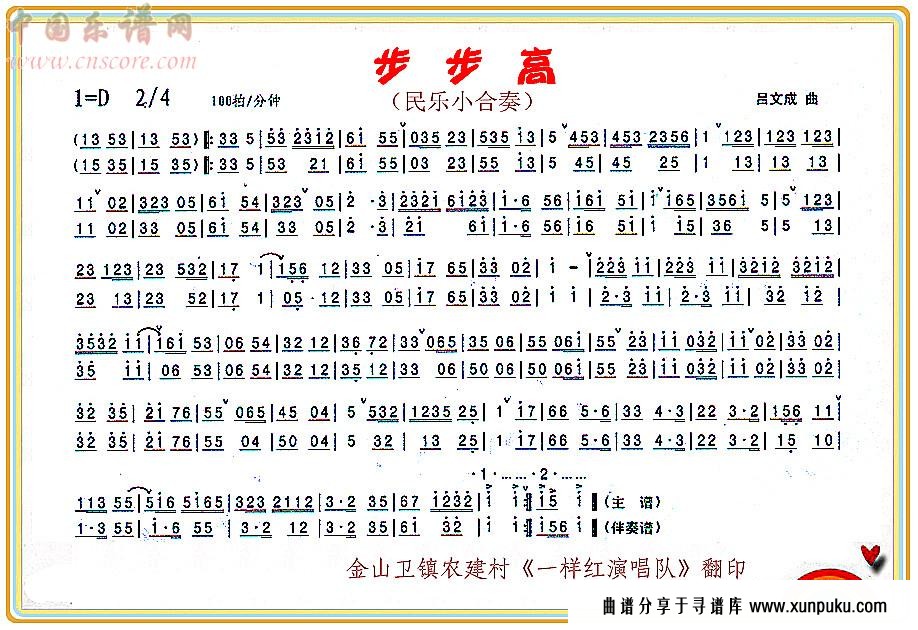 中国乐谱网
www.cnscore.com
步步高
1=D 2/4 100拍/分钟 (民乐小合奏) 吕文成 曲
(13 53|13 53)‖:33 5|53 2312|61 55|035 23|535 13|5ˇ453|453 2356|1ˇ123|123 123|
(15 35|15 35)‖:33 5|53 21|61 55|03 23|55 13|5 45|45 25|1 13|13 13|
11ˇ02|323 05|61 54|323ˇ05|2 ·3|2321 6123|1·6 56|161 51|1ˇ165|3561 5|5 123|
11 02|33 05|61 54|33 05|2 ·3|21 61|1·6 56|16 51|1 15|36 5|5 13|
23 123|23 532|17 1|156 12|33 05|17 65|33 02|1 -|223 11|223 11|3212 3212|
23 13|23 52|17 1|05· 12|33 05|17 65|33 02|1 1|2·3 11|2·3 11|32 12|
3532 11|161 53|06 54|32 12|36 72|33ˇ065|35 06|55ˇ032|11 032|11 02|33 02|
35 11|06 53|06 54|32 12|36 72|33 065|35 06|55 032|11 032|11 02|33 02|
32 35|21 76|55ˇ065|45 04|5ˇ532|1235 25|1ˇ17|66 5·6|33 4·3|22 3·2|156 11ˇ|
32 35|21 76|55 04|50 04|5 32|13 25|1 17|66 5·6|33 4·3|22 3·2|15 10|
·1·……·2·……
113 55|516 5165|323 2112|3·2 35|67 1232|1 1:‖15 1‖(主 谱)
1·3 55|1·6 55|3·2 12|3·2 35|61 32|1 1:‖156 1‖(伴奏谱)
金山卫镇农建村《一样红演唱队》翻印
曲谱分享于寻谱库 www.xunpuku.com